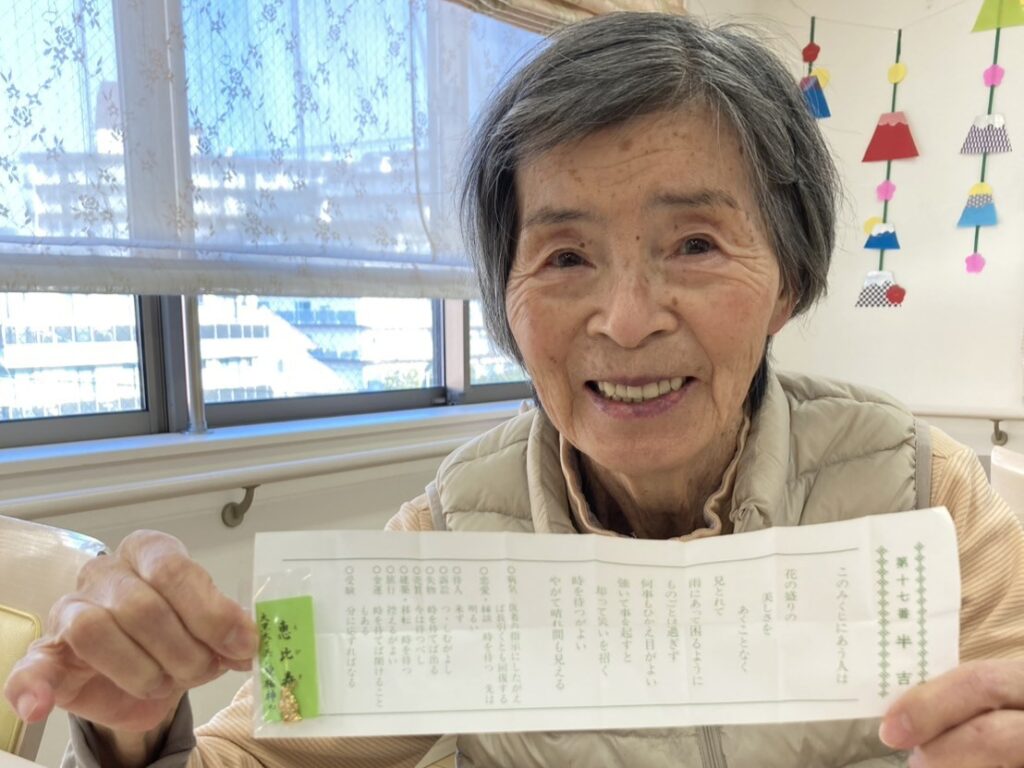 第十七番 半吉
このみくじにあう人は
花の盛りの
美しさを
あくことなく
見とれて
雨にあって困るように
ものごとは過ぎず
何事もひかえ目がよい
強いて事を起すと
却って災いを招く
時を待つがよい
やがて晴れ間も見える
○病気 医者の指示にしたがえ
ば長引くとも回復する
○恋愛・縁談 時を待つ 先は
明るい
○待人 来ず
○訴訟 つゝしむがよし
○失物 時を経て出る
○売買 今は待つべし
○建築・移転 時を待つ
○旅行 控えるがよい
○金運 時を待てば開けること
もある
○受験 分に応ずればなる
恵比寿